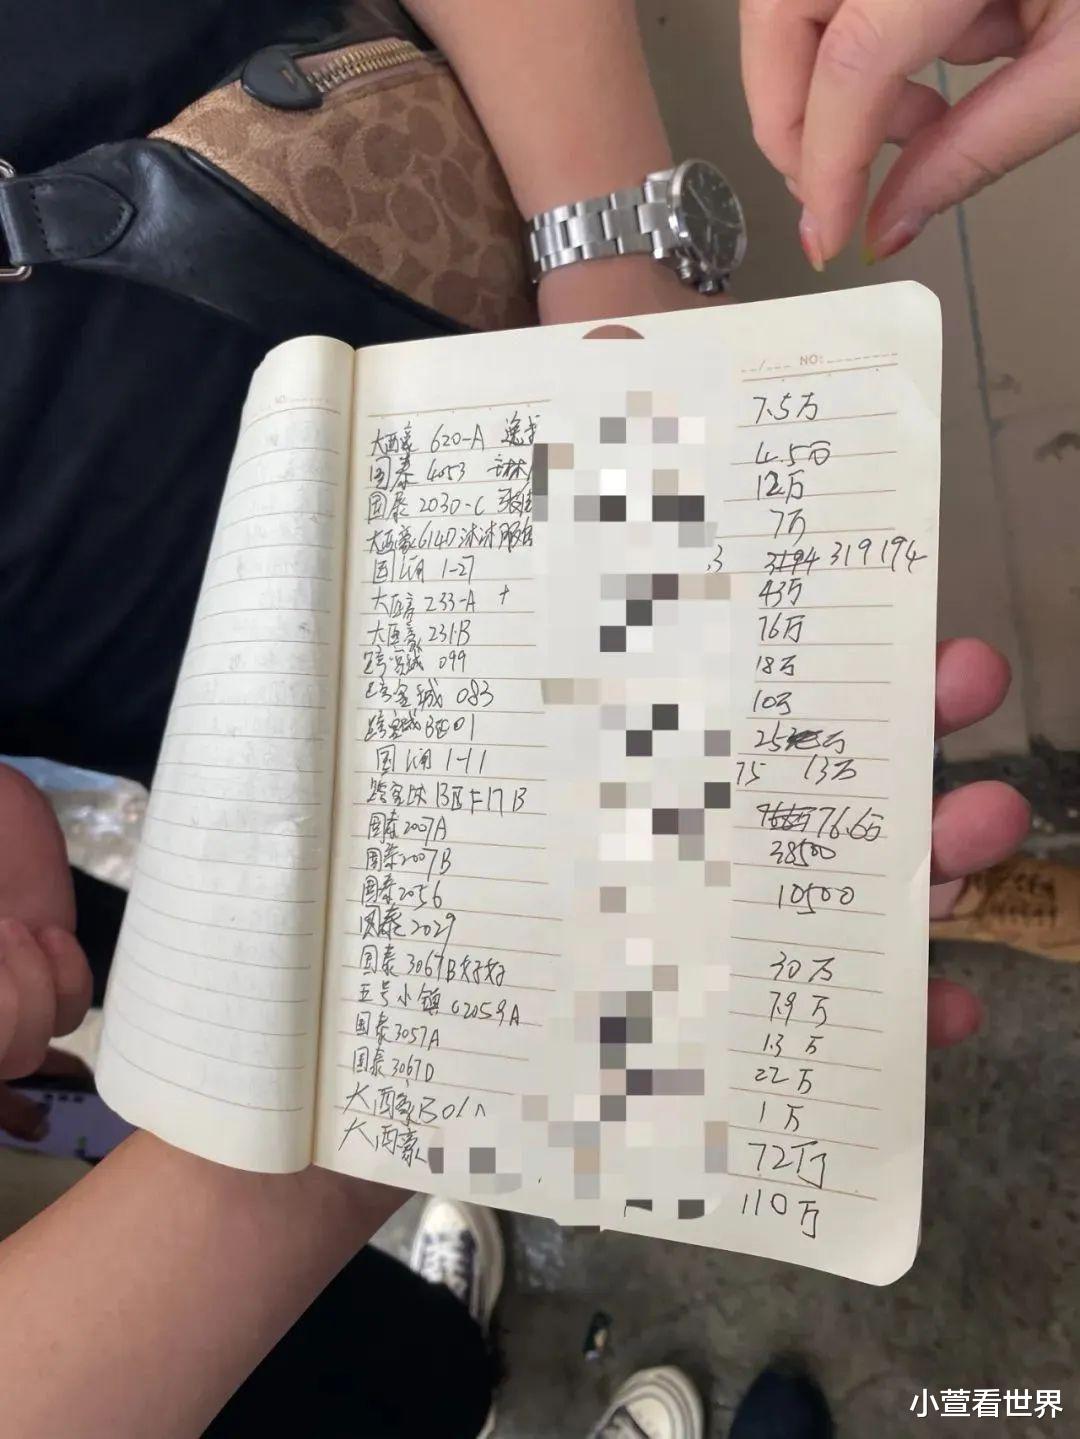 NO:
大西豪 620-A 7.5万
国泰 4053 4.5万
国泰 2030-C 12万
大西豪 614D 沐沐服 7万
国润 1-27 .3 319194
大西豪 233-A 43万
大西豪 231-B 16万
跨客城 099 18万
跨客城 083 10万
跨客城 B区01 25万
国润 1-11 75 13万
跨客城 B区F17B 76.6万
国泰 2007A 38500
国泰 2007B 10500
国泰 2056
国泰 2029 30万
国泰 3067B 好好 7.9万
五号小镇 C2059A 1.3万
国泰 3057A 22万
国泰 3067D 1万
大西豪 B01 72万
大西豪 110万
小萱看世界